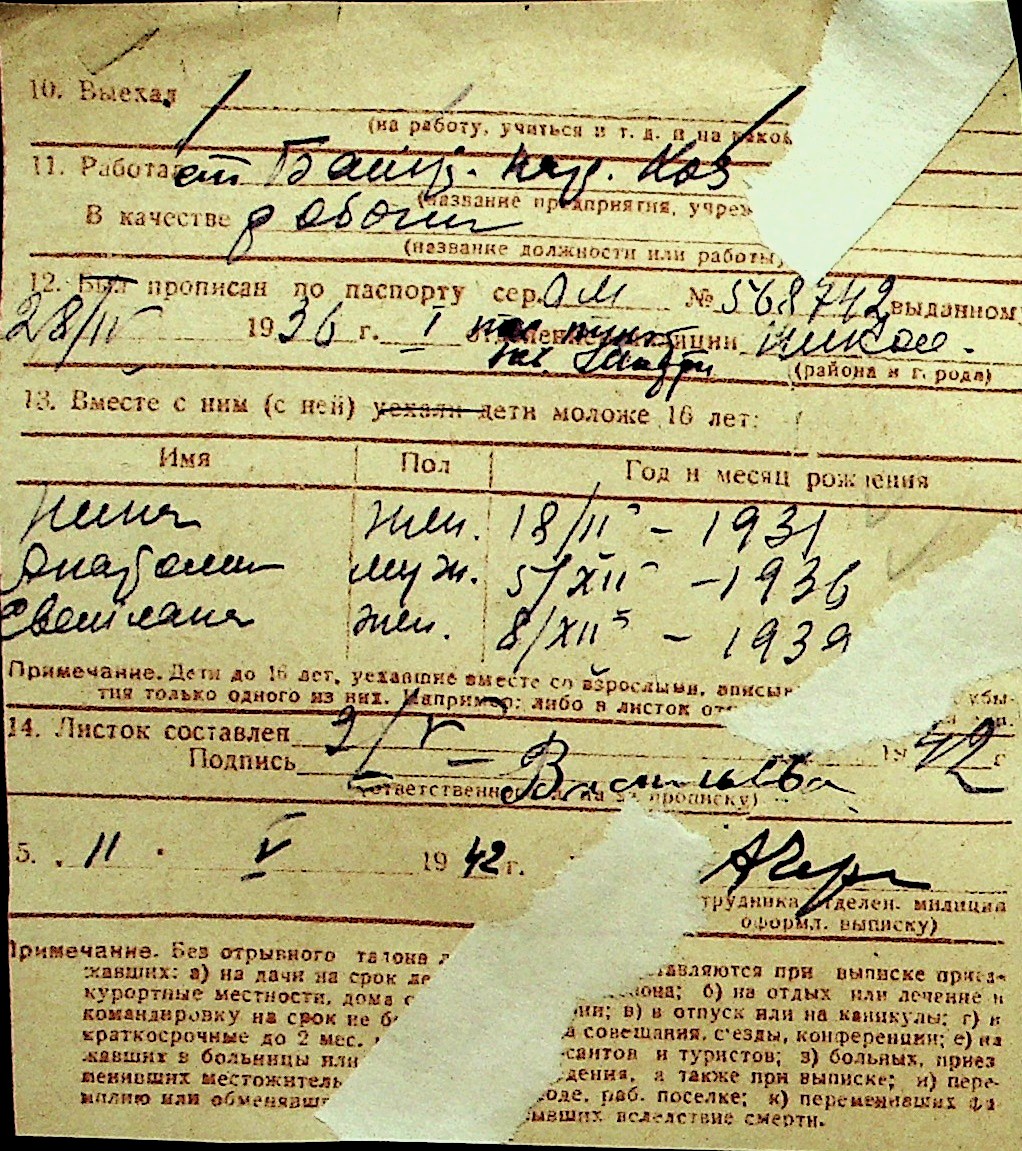 10. Выехал
(на работу, учиться и т. д. и на како
11. Работал
В качестве рабочий
(название предприятия, учреж
(название должности или работы)
12. Был прописан по паспорту сер. ОМ № 568742 выданному
28/IV 1936 г. I отделением милиции
(района и города)
13. Вместе с ним (с ней) уехали дети моложе 16 лет:
Имя Пол Год и месяц рождения
Нина жен. 18/II - 1931
Анатолий муж. 5/XII - 1936
Светлана жен. 8/XII - 1939
Примечание. Дети до 16 лет, уехавшие вместе со взрослыми, вписыв убы-
тия только одного из них. Например: либо в листок от
14. Листок составлен 9/V - 1942 г
Подпись Васильева
(ответственного за прописку)
5. 11 V 1942 г.
трудника отделен. милиции
оформл. выписку)
Примечание. Без отрывного талона
жавших: а) на дачи на срок тавляются при выписке приез-
курортные местности, дома б) на отдых или лечение в
командировку на срок не б в) в отпуск или на каникулы; г) в
краткосрочные до 2 мес. совещания, съезды, конференции; е) на
жавших в больницы или и туристов; з) больных, приез
менивших местожитель а также при выписке; и) пере-
милию или обменявш раб. поселке; к) переменивших фа-
ывших вследствие смерти.